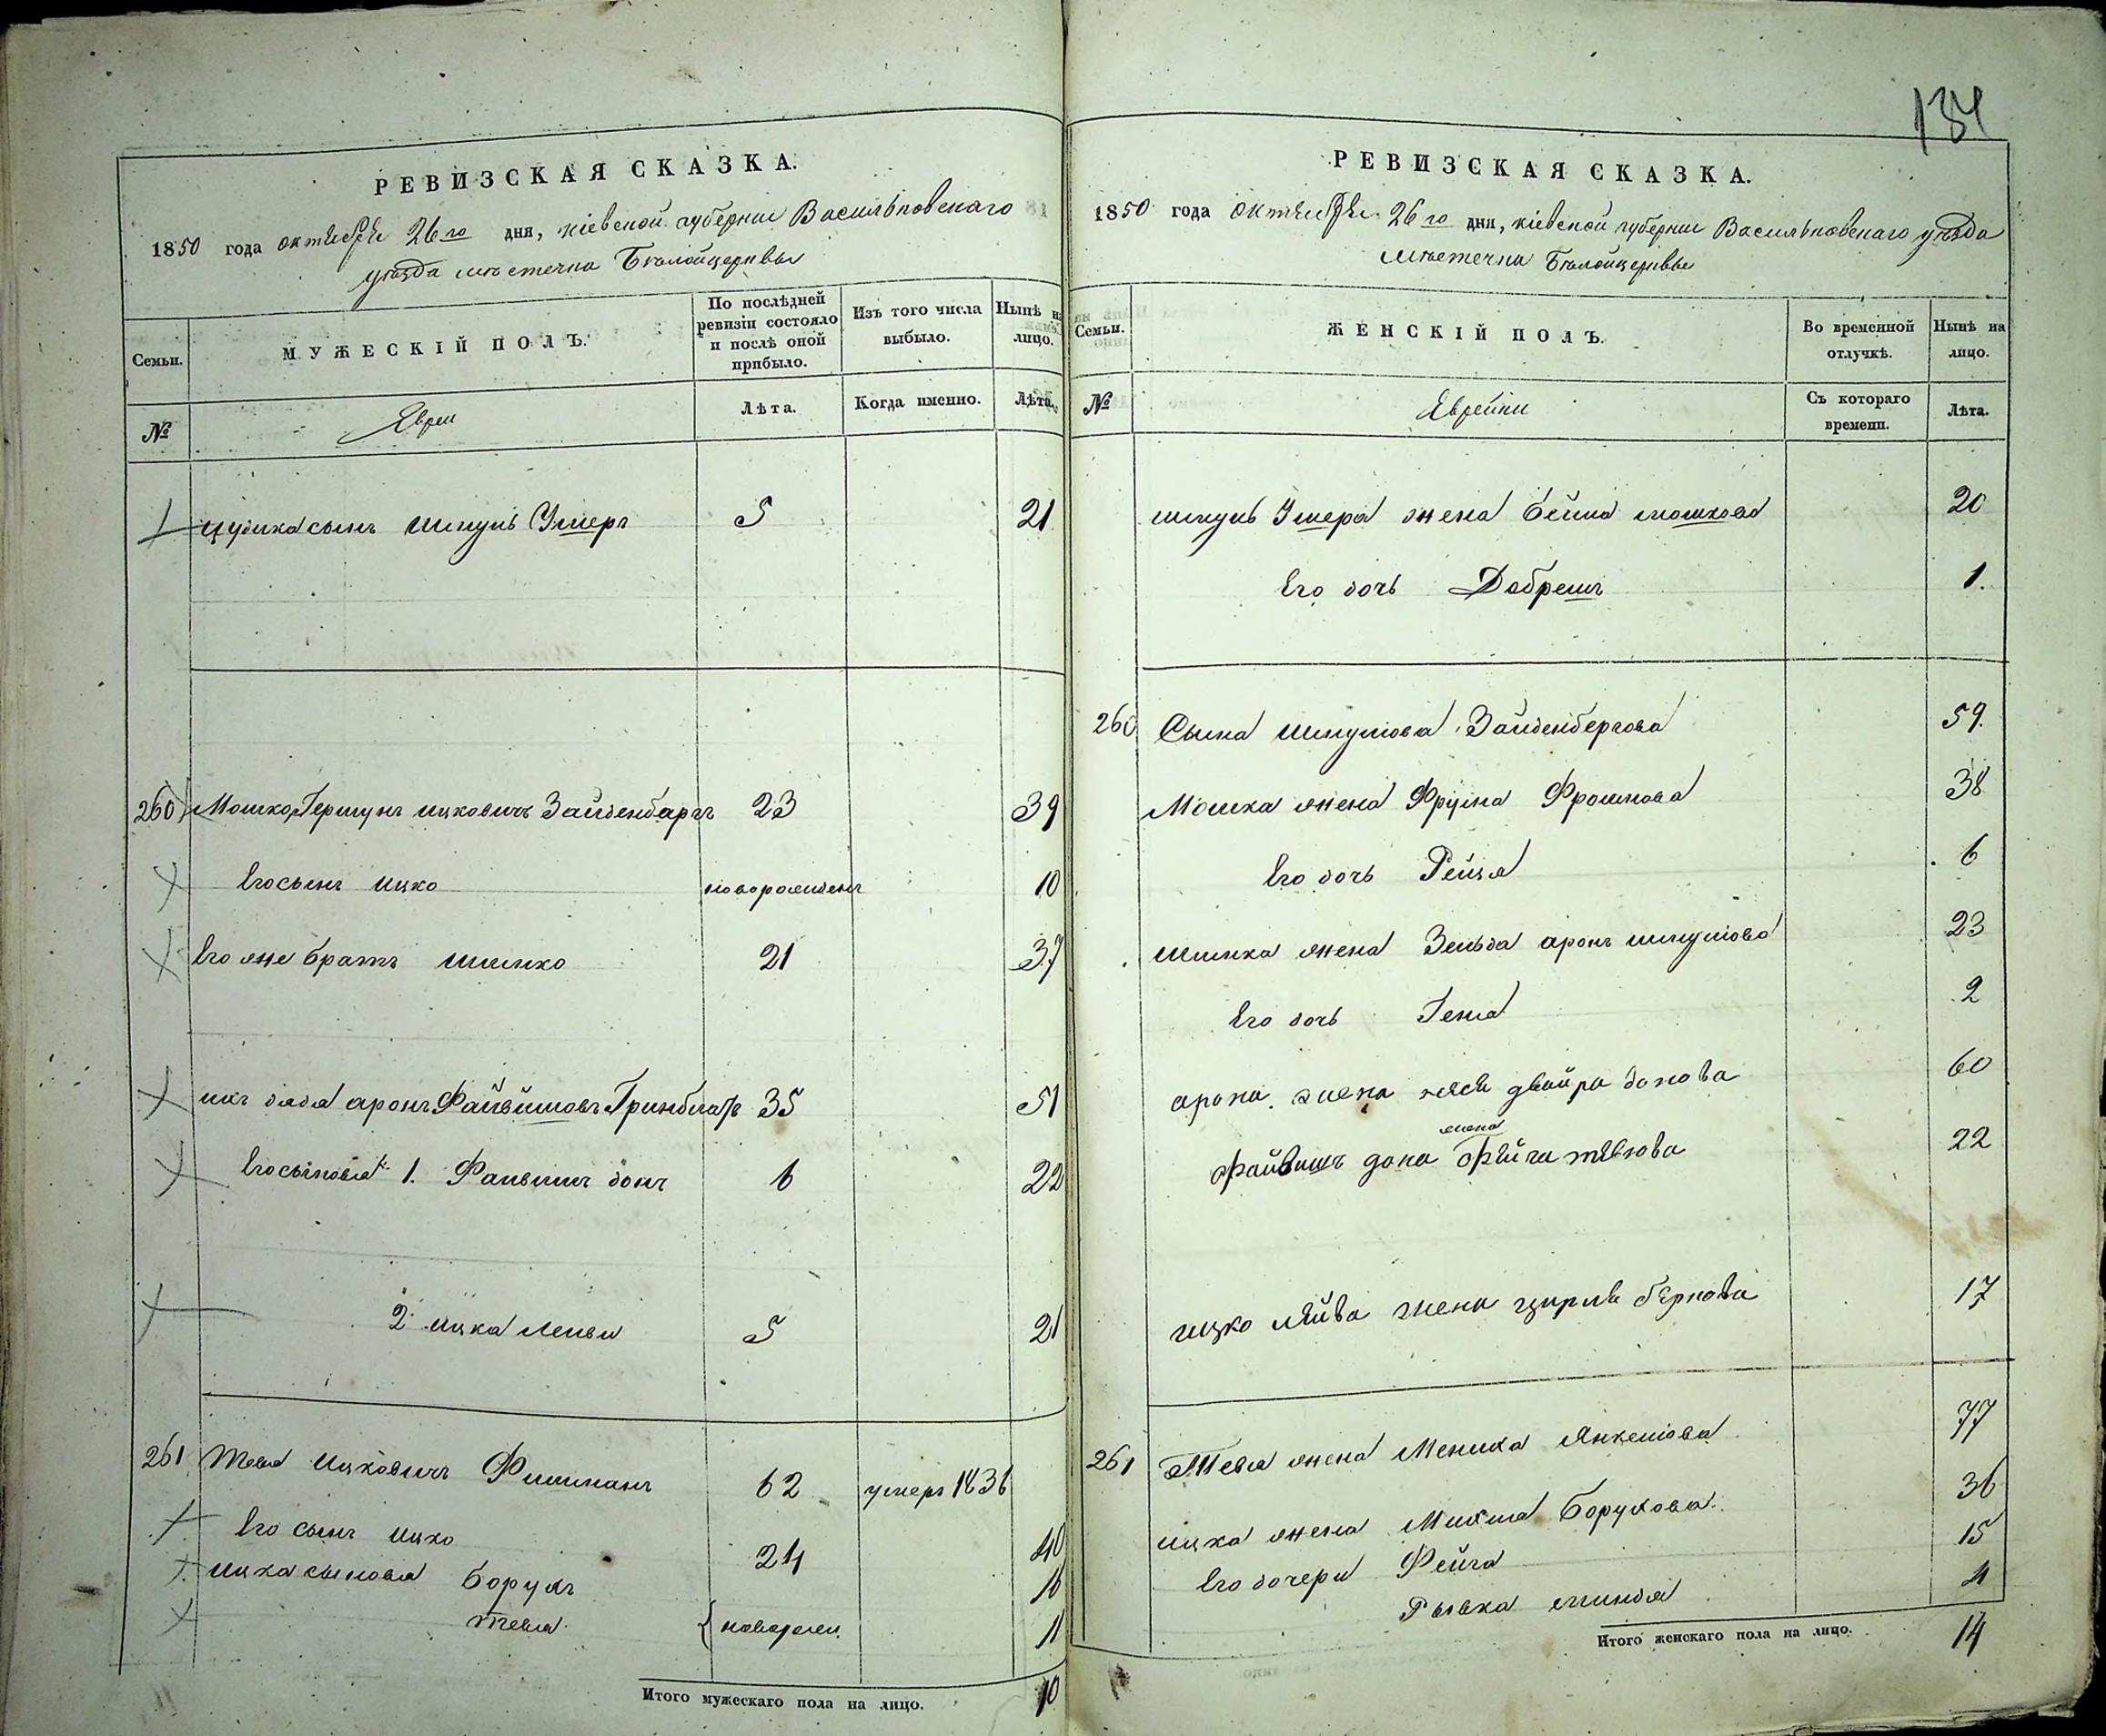 134
РЕВИЗСКАЯ СКАЗКА.
1850 года октября 26го дня, кіевской губерніи Васильковскаго
уѣзда мѣстечка Бѣлойцеркви
Семьи.
МУЖЕСКІЙ ПОЛЪ.
По послѣдней ревизіи состояло и послѣ оной прибыло.
Изъ того числа выбыло.
Нынѣ на лицо.
№
Евреи
Лѣта.
Когда именно.
Лѣта.
сынъ Шмуль Ушеръ 5 21
260 Мошко Гершунъ Ицковичъ Зайденбергъ 23 39
Его сынъ Ицко новорожденъ 10
Его же братъ Шимко 21 37
ихъ дядя аронъ Файвишовъ Гринблатъ 35 51
Его сыновья 1. Файвишъ донъ 6 22
2 Ицка Лейви 5 21
261 Тевя Ицковичъ Фишманъ 62 умеръ 1836
Его сынъ Ицко 24 40
Ицка сыновья Борухъ 16
Тевя { новорожд. 11
Итого мужескаго пола на лицо. 10
РЕВИЗСКАЯ СКАЗКА.
1850 года октября 26го дня, кіевской губерніи Васильковскаго уѣзда
мѣстечка Бѣлойцеркви
Семьи.
ЖЕНСКІЙ ПОЛЪ.
Во временной отлучкѣ.
Нынѣ на лицо.
№
Еврейки
Съ котораго времени.
Лѣта.
Шмуль Ушера жена Бейла Мошкова 20
Его дочь Добришъ 1.
260 Сыма Шмулiова Зайденбергова 59.
Мошка жена Фрума Фроимова 38
Его дочь Рейзя 6
Шимка жена Зельда аронъ Шмулiова 23
Его дочь Геня 2
арона жена хася двойра донова 60
Файвишъ дона жена Фейга тевьова 22
ицко лейва жена цирля беркова 17
261 Тевя жена Мениха Янкелiова 77
Ицка жена Михля Борухова 36
Его дочери Фейга 15
Рывка миндя 4
Итого женскаго пола на лицо. 14